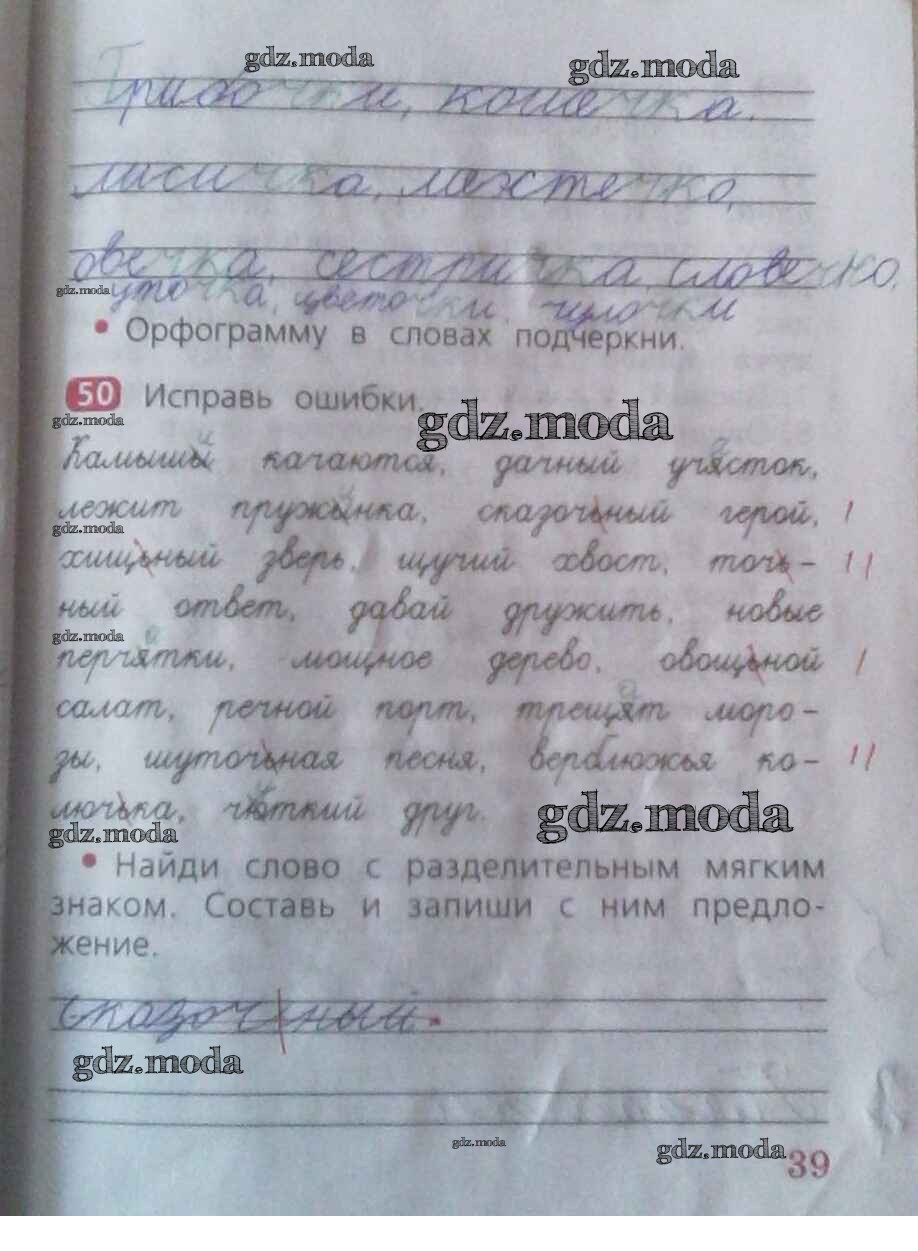 gdz.moda gdz.moda
Грибочки, кошечка,
лисичка, лехтечко,
овечка, сестричка, словечко,
gdz.moda уточка, цветочки, чулочки
• Орфограмму в словах подчеркни.
50 Исправь ошибки.
gdz.moda gdz.moda
Камышы качаются, дачный учясток,
лежит пружынка, сказочьный герой,
gdz.moda
хищьный зверь, щучий хвост, точь-
ный ответ, давай дружить, новые
gdz.moda
перчятки, мощное дерево, овощьной
салат, речной порт, трещят моро-
зы, шуточьная песня, верблюжья ко-
лючька, чёткий друг.
gdz.moda gdz.moda
• Найди слово с разделительным мягким
знаком. Составь и запиши с ним предло-
жение.
сказочный.
gdz.moda
gdz.moda gdz.moda
39